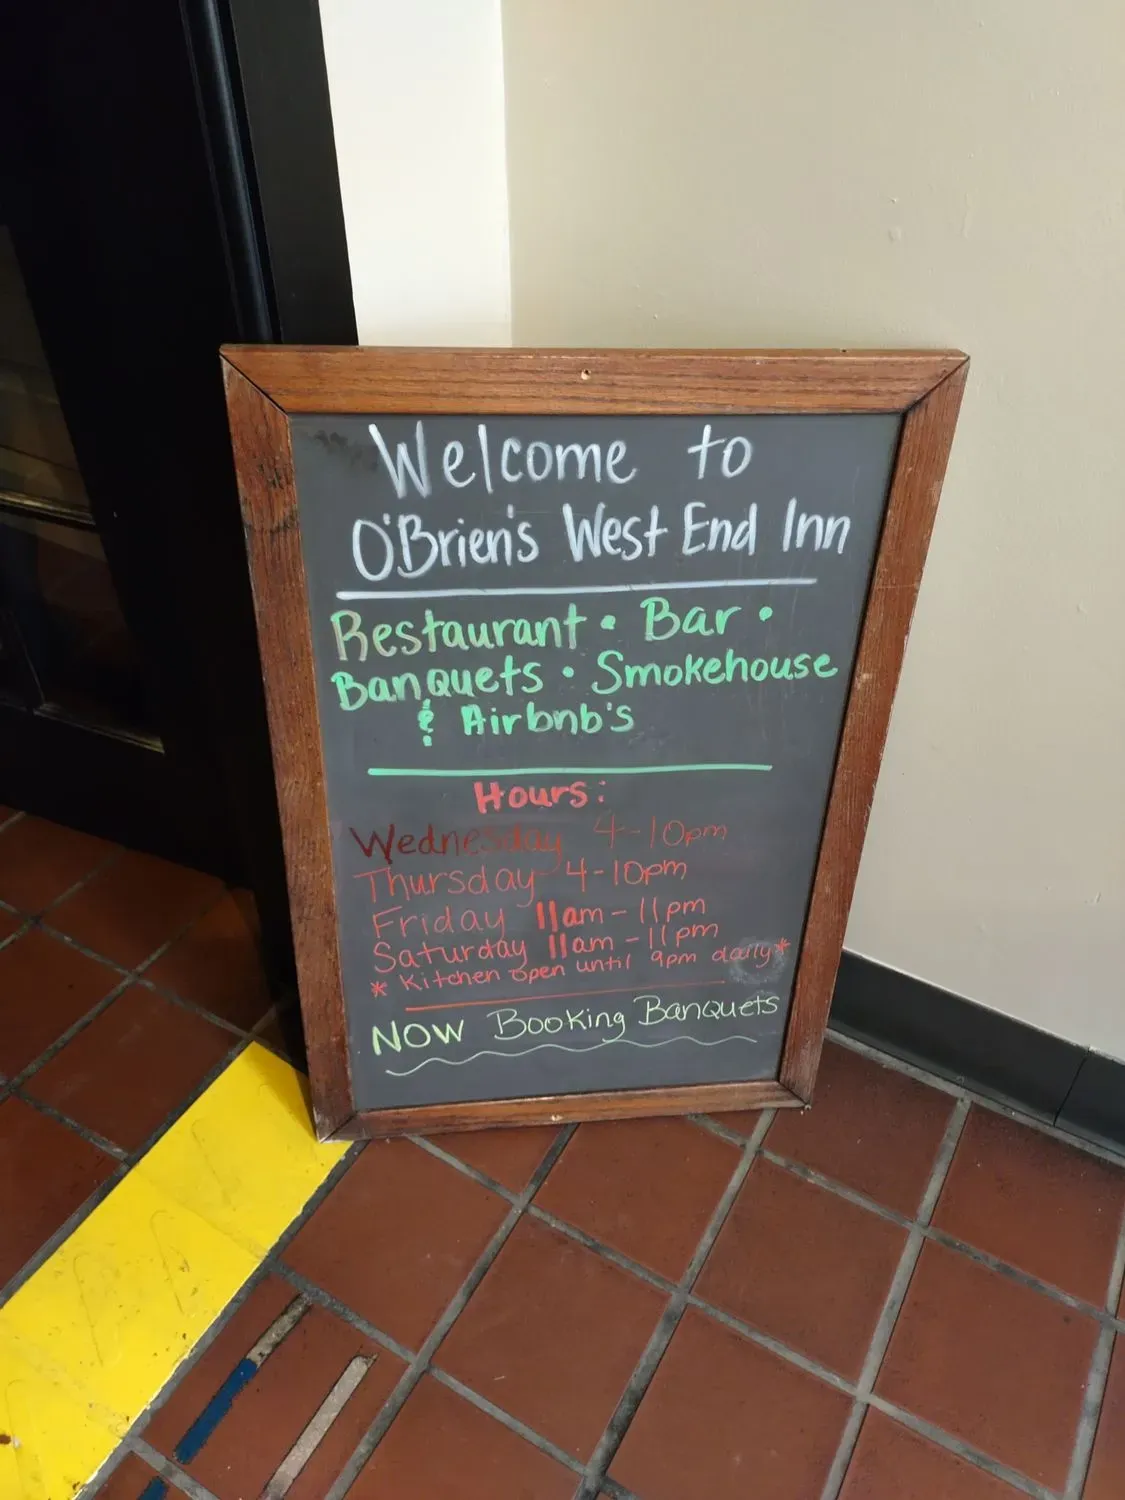 Welcome to
O'Brien's West End Inn
Restaurant • Bar •
Banquets • Smokehouse
& Airbnb's
Hours:
Wednesday 4-10pm
Thursday 4-10pm
Friday 11am-11pm
Saturday 11am-11pm
* Kitchen open until 9pm daily*
NOW Booking Banquets